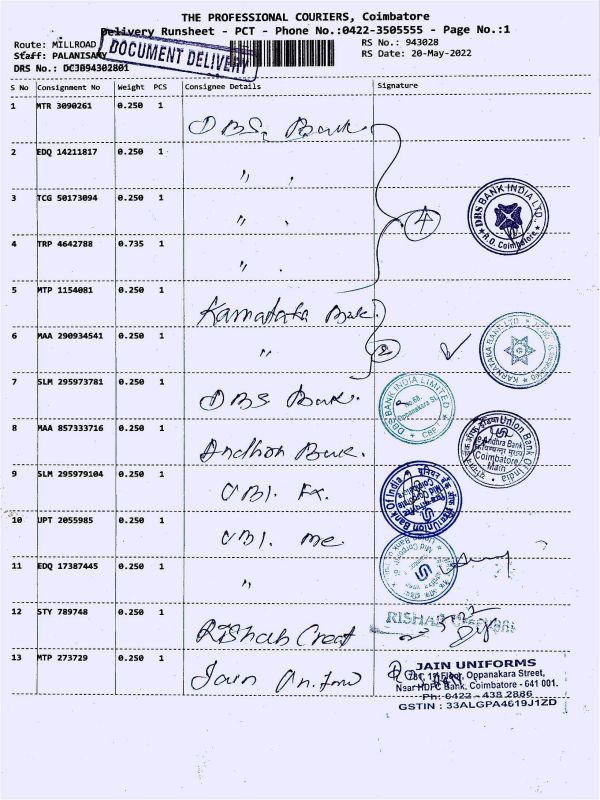 THE PROFESSIONAL COURIERS, Coimbatore
Delivery Runsheet - PCT - Phone No.:0422-3505555 - Page No.:1
Route: MILLROAD
RS No.: 943028
Staff: PALANISAMY
RS Date: 20-May-2022
DRS No.: DCJB94302801
DOCUMENT DELIVERY
S No Consignment No Weight PCS Consignee Details Signature
1 MTR 3090261 0.250 1 DBS Bank
2 EDQ 14211817 0.250 1 〃
3 TCG 50173094 0.250 1 〃
4 TRP 4642788 0.735 1 〃
4
DBS BANK INDIA LTD.
R.O. Coimbatore
5 MTP 1154081 0.250 1 Karnataka Bank
6 MAA 290934541 0.250 1 〃
2
KARNATAKA BANK LTD
7 SLM 295973781 0.250 1 DBS Bank.
DBS BANK INDIA LIMITED
No.68,
Oppanakara St.
CBE-1
8 MAA 857333716 0.250 1 Andhra Bank.
Union Bank Of India
Andhra Bank
Coimbatore
Main
9 SLM 295979104 0.250 1 UBI. Fx.
Union Bank Of India
10 UPT 2055985 0.250 1 UBI. me
11 EDQ 17387445 0.250 1 〃
12 STY 789748 0.250 1 Rishab Creat
RISHAB
13 MTP 273729 0.250 1 Jain
JAIN UNIFORMS
Floor, Oppanakara Street,
Near HDFC Bank, Coimbatore - 641 001.
Ph: 0422 - 438 2886
GSTIN : 33ALGPA4619J1ZD